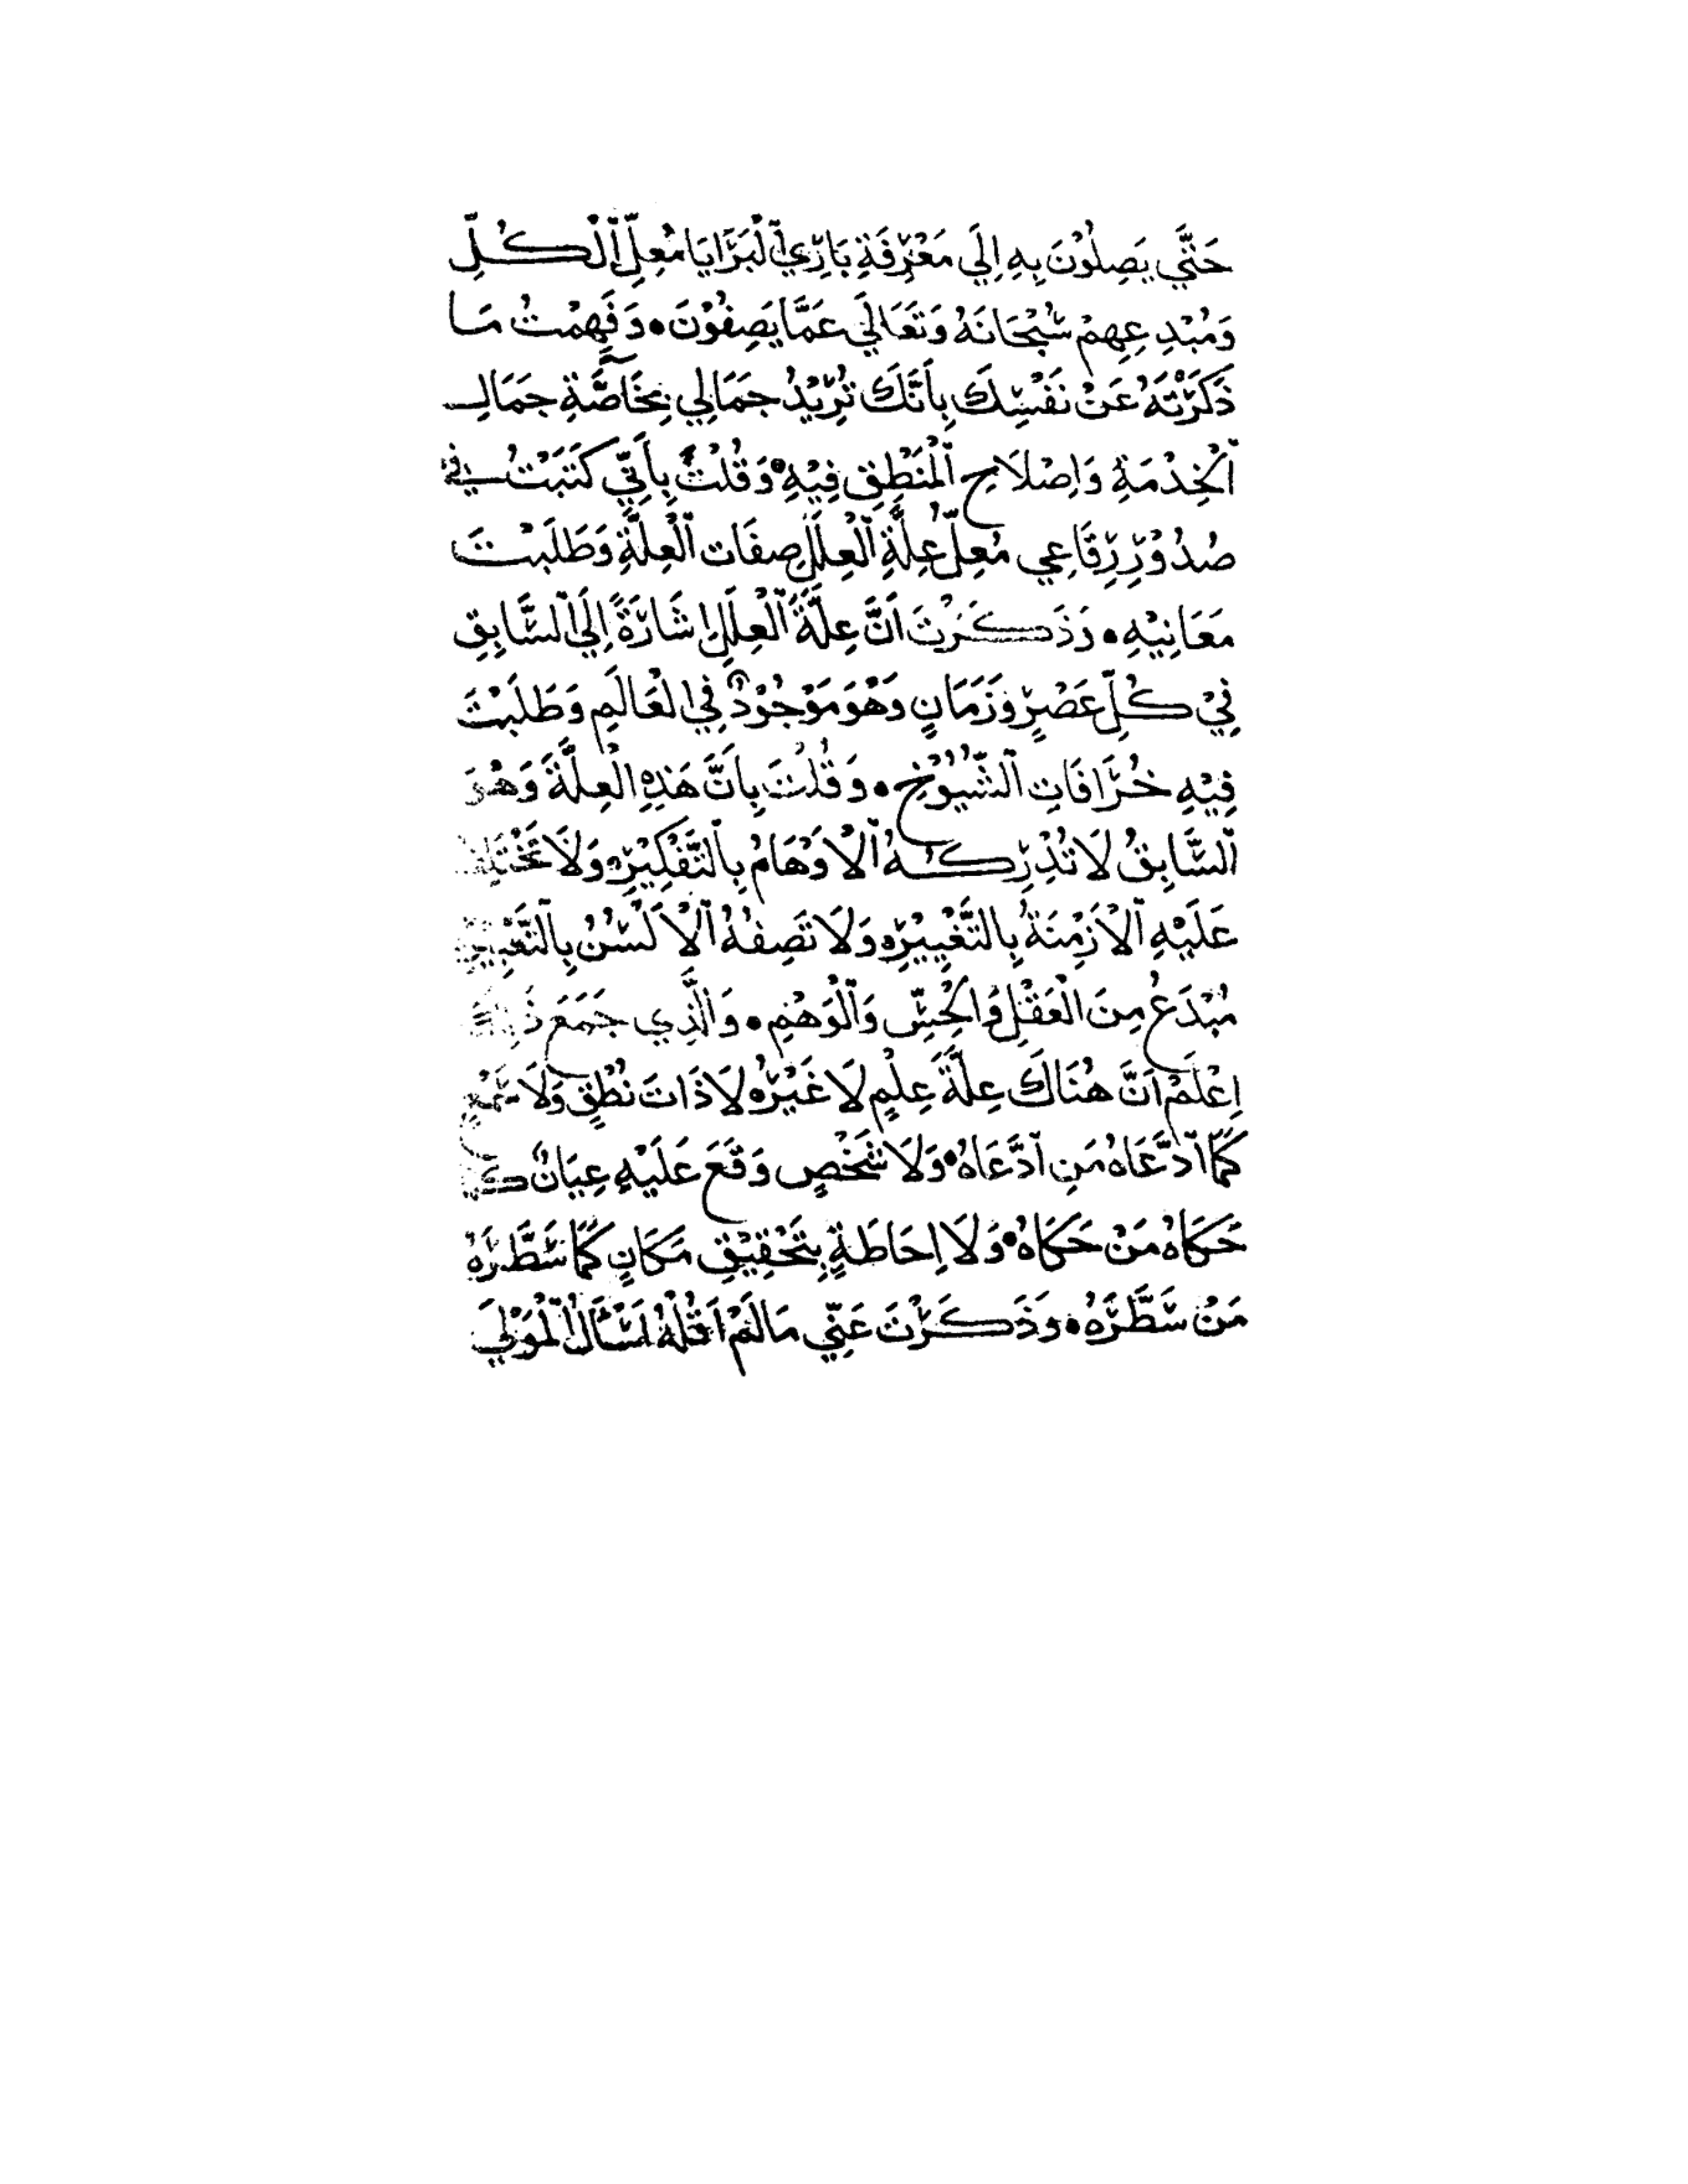 حَتَّي يَصِلُوْنَ بِهِ اِلَي مَعْرِفَةِ بَارِيِ ٱلْبَرَايَا مُعِلِّ ٱلْكُلِّ
وَمُبْدِعِهِمْ سُبْحَانَهُ وَتَعَالَي عَمَّا يَصِفُوْنَ • وَفَهِمْتُ مَا
ذَكَرْتَهُ عَنْ نَفْسِكَ بِاَنَّكَ تُرِيْدُ جَمَالِي بِخَاصَّةِ جَمَالِ
ٱلْخِدْمَةِ وَاِصْلَاحِ ٱلْمَنْطِقِ فِيْهِ • وَقُلْتَ بِاَنِّي كَتَبْتُ فِي
صُدُوْرِ رِقَاعِي مُعِلِّ عِلَّةِ ٱلْعِلَلِ صِفَات ٱلْعِلَّةِ وَطَلَبْتَ
مَعَانِيْهِ • وَذَكَرْتَ اَنَّ عِلَّةَ ٱلْعِلَلِ اِشَارَةً اِلَي ٱلسَّابِقِ
فِيْ كُلِّ عَصْرٍ وَزَمَانٍ وَهُوَ مَوْجُوْدٌ فِي الْعَالَمِ وَطَلَبْتَ
فِيْهِ خُرَافَاتِ ٱلشُّيُوْخِ • وَقُلْتَ بِاَنَّ هَذِهِ الْعِلَّةَ وَهُوَ
ٱلسَّابِقُ لَا تُدْرِكُهُ ٱلْاَوْهَامُ بِالتَّفْكِيْرِ • وَلَا تَخْتَلِفُ
عَلَيْهِ ٱلْاَزْمِنَةُ بِالتَّغْيِيْرِ • وَلَا تَصِفُهُ ٱلْاَلْسُنُ بِالتَّعْبِيْرِ
مُبْدَعُ مِنَ الْعَقْلِ وَالْحِسِّ وَٱلْوَهْمِ • وَالَّذِي جَمَعَ
اِعْلَمْ اَنَّ هُنَاكَ عِلَّةَ عِلْمٍ لَا غَيْرُهُ لَا ذَاتَ نُطْقٍ وَلَا
كَمَا ٱدَّعَاهُ مَنِ ٱدَّعَاهُ • وَلَا شَخْصٍ وَقَعَ عَلَيْهِ عِيَانٌ
حَكَاهُ مَنْ حَكَاهُ • وَلَا اِحَاطَةٍ بِتَحْقِيْقِ مَكَانٍ كَمَا سَطَّرَهُ
مَنْ سَطَّرَهُ • وَذَكَرْتَ عَنِّي مَا لَمْ اَقُلْهُ نَسْاَلُ ٱلْمَوْلَي